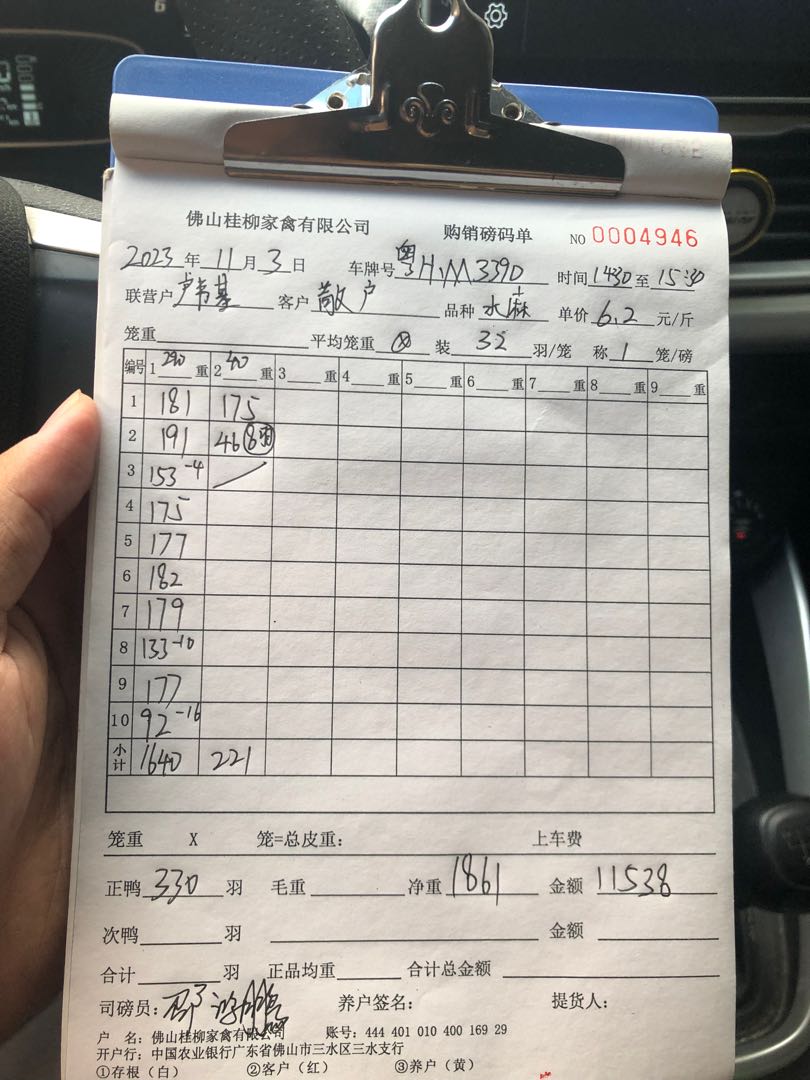 佛山桂柳家禽有限公司 购销磅码单 NO 0004946
2023年11月3日 车牌号粤H·M3390 时间1430至15:30
联营户 卢韦基 客户 散户 品种 水麻 单价 6.2 元/斤
笼重 平均笼重 装 32 羽/笼 称 1 笼/磅
编号 1 290 重 2 40 重 3 重 4 重 5 重 6 重 7 重 8 重 9 重
1 181 175
2 191 46 8羽
3 153-4
4 175
5 177
6 182
7 179
8 133-10
9 177
10 92-16
小计 1640 221
笼重 X 笼=总皮重: 上车费
正鸭 330 羽 毛重 净重 1861 金额 11538
次鸭 羽 金额
合计 羽 正品均重 合计总金额
司磅员: 养户签名: 提货人:
户 名: 佛山桂柳家禽有限公司 账号: 444 401 010 400 169 29
开户行: 中国农业银行广东省佛山市三水区三水支行
①存根(白) ②客户(红) ③养户(黄)